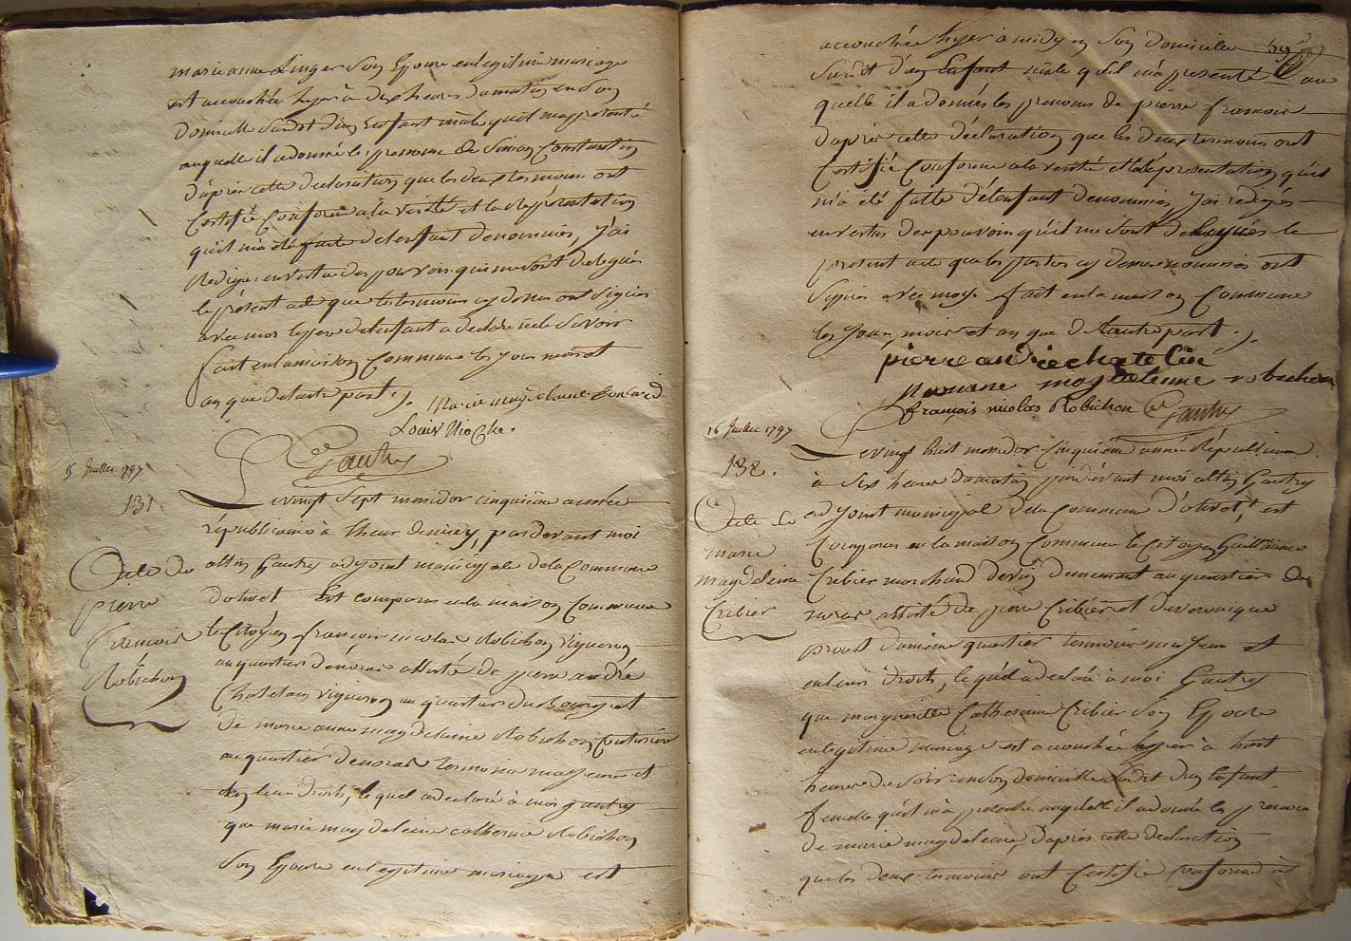 marie anne Linger son Epouse en legitime mariage
est accouchée hyer à dix heures du matin en son
domicille susdit d'un Enfant mâle qu'il m'a présenté
auquelle il a donné les prenoms de Simon Constantin
d'après cette declaration que les deux temoins ont
Certifié Conforme à la verité et la représentation
qu'il m'a été faite de l'enfant denommés, j'ai
Rédigé en vertu des pouvoirs qui me sont delegués
le présent acte que les temoins cy denom ont signés
avec moi le pere de l'enfant a declaré ne le savoir
fait en la maison Commune les jour mois et
an que d'autre part.
marie magdelaine
Louis Nioche.
Gautry
15 Juillet 1797
131.
Acte de
pierre
francois
Robichon
Le vingt Sept mesidor cinquieme année
républicaine à l'heur de midy, par devant moi
Gautry adjoint municipale de la Commune
d'olivet Est comparus en la maison Commune
le Citoyen francois nicolas Robichon Vigneron
au quartier de noras assisté de pierre andré
Chatelain vigneron au quartier du Bourg et
de marie anne magdelaine Robichon couturière
au quartier de noras temoins majeurs et
en leur droits, le quel a declaré à moi gautry
que marie magdelaine catherine Robichon
Son Epouse en legitime mariage est
accouchée hyer à midy en son domicile
Susdit d'un Enfant mâle qu'il m'a présenté au
quelle il a donnés les prenoms de pierre francois
d'après cette déclaration que les deux temoins ont
Certifié Conforme a la verité et la représentation qu'il
m'a été faitte de l'enfant denommés, j'ai redigés
en vertus des pouvoirs qu'il me sont delegués le
présent acte que les parties cy denommés ont
Signés avec moy. fait en la maison Commune
les Jour, mois et an que d'autre part.
pierre andré chatelin
marianne magdelenne robichon
françois nicolas Robichon Gautry
16 Juillet 1797
132.
Acte de
marie
magdeleine
Cribier
Le vingt huit mesidor Cinquieme année Républicaine
à six heures du matin par devant moi Gautry
adjoint municipal de la Commune d'olivet, est
Comparus en la maison Commune le Citoyen Guillaume
Cribier marchand de vin demeurant au quartier de
noras assisté de pierre Cribier et de veronique
proust du meme quartier temoins majeurs et
en leurs droits, le quel a declaré à moi Gautry
que marguerite Catherine Cribier son Epouse
en legitime mariage est accouchée hyer à huit
heures du soir en son domicille susdit d'un Enfant
femelle qu'il m'a présenté auquelle il a donné les prenoms
de marie magdelaine, d'après cette declaration
que les deux temoins ont Certifié Conforme à